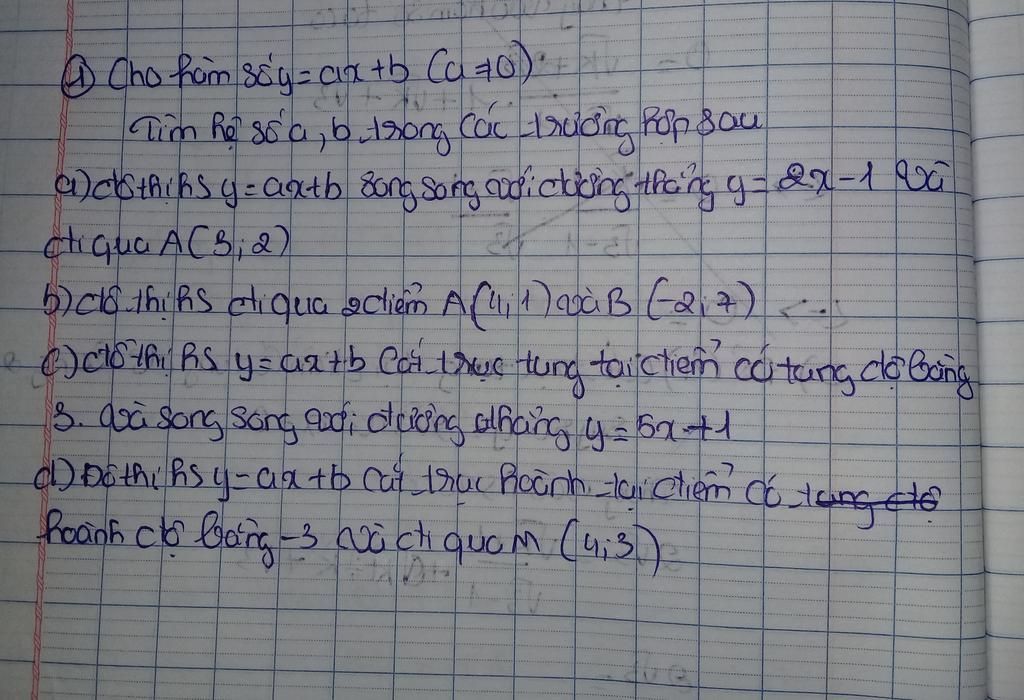 ① Cho hàm số y = ax + b (a ≠ 0)
Tìm hệ số a, b trong các trường hợp sau
a) đồ thị hs y = ax + b song song với đường thẳng y = 2x - 1 và
đi qua A(3; 2)
b) đồ thị hs đi qua 2 điểm A(4; 1) và B (-2; 7)
c) đồ thị hs y = ax + b cắt trục tung tại điểm có tung độ bằng
3. và song song với đường thẳng y = 5x + 1
d) Đồ thị hs y = ax + b cắt trục hoành tại điểm có tung độ
hoành độ bằng -3 và đi qua M (4; 3)